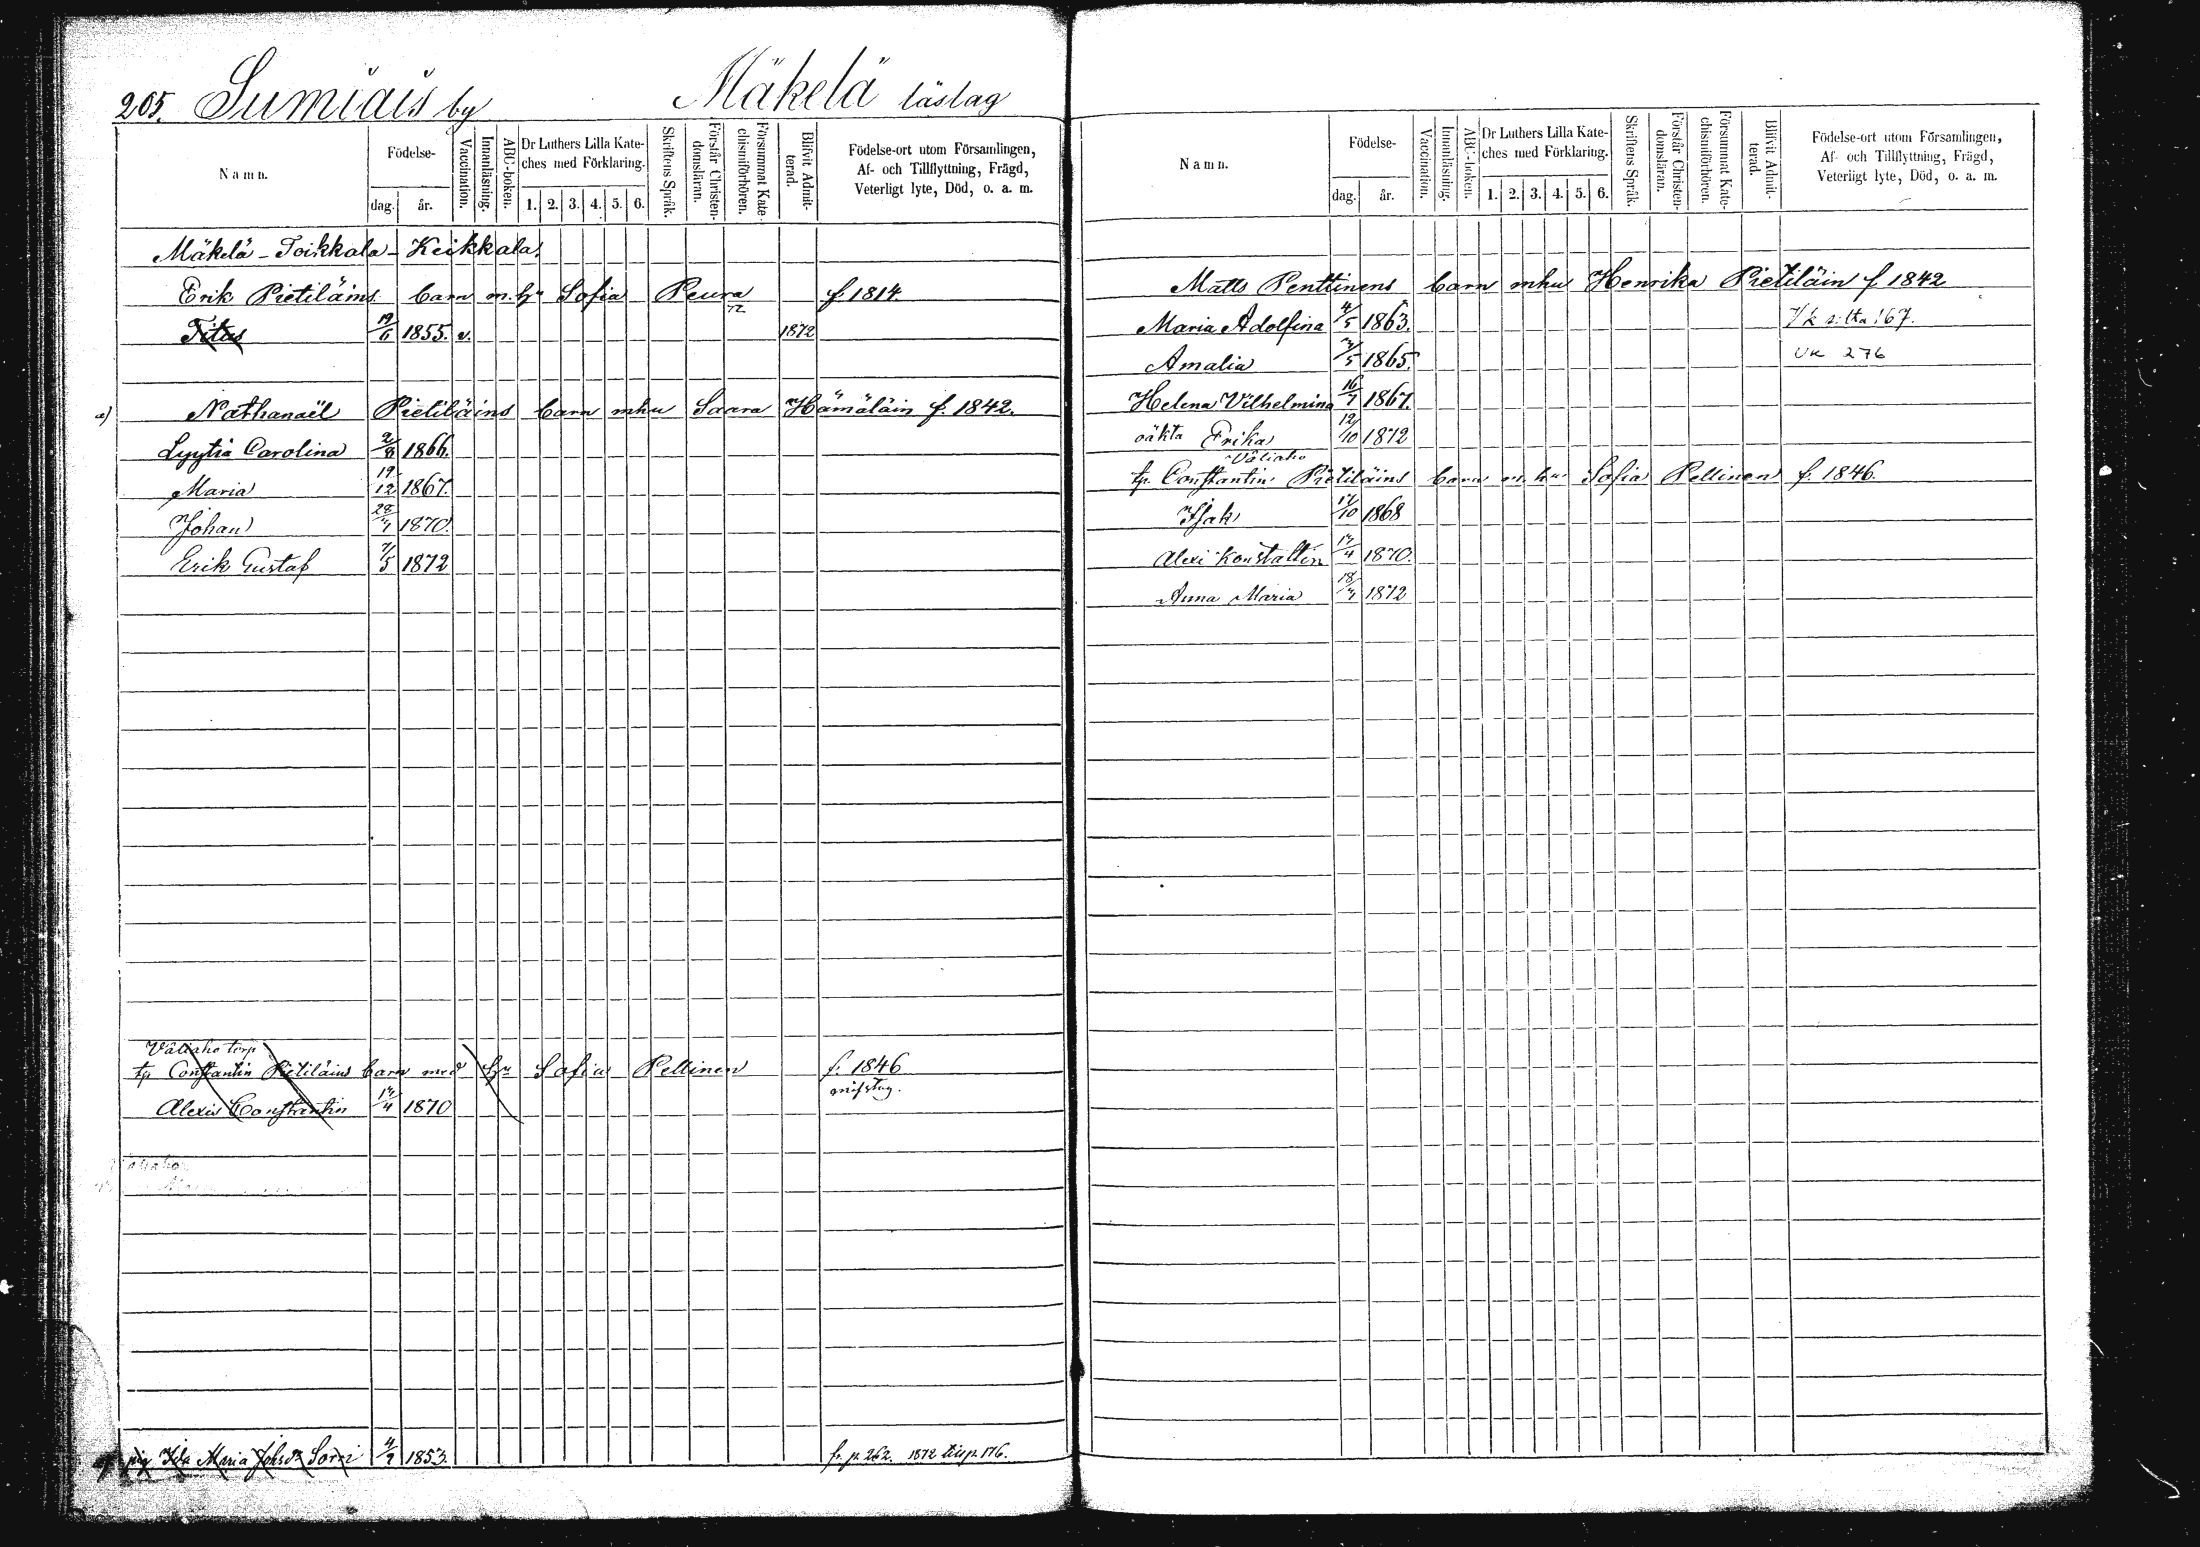 205. Sumiais by Mäkelä läslag
Namn. Födelse- dag. år. Vaccination. Innanläsning. ABC-boken. Dr Luthers Lilla Kateches med Förklaring. 1. 2. 3. 4. 5. 6. Skriftens Språk. Förstår Christendomsläran. Försummat Katechismiförhören. Blifvit Admitterad. Födelse-ort utom Församlingen, Af- och Tillflyttning, Frägd, Veterligt lyte, Död, o. a. m.
Mäkelä - Toikkala - Keikkala.
Erik Pietiläins barn m. hu Sofia Peura f. 1814.
72
Titus 19/6 1855. v. 1872
a) Nathanaël Pietiläins barn mhu Saara Hämäläin f. 1842.
Lyytia Carolina 2/8 1866.
Maria 19/12 1867.
Johan 28/1 1870.
Erik Gustaf 7/5 1872
Väliaho torp
tp. Constantin Pietiläins barn med hu Sofia Pellinen f. 1846
misstag.
Alexis Constantin 17/4 1870
Väliaho
pig Ida Maria Johsdr Sorri 4/9 1853. fr. p. 262. 1872 till p. 176.
Namn. Födelse- dag. år. Vaccination. Innanläsning. ABC-boken. Dr Luthers Lilla Kateches med Förklaring. 1. 2. 3. 4. 5. 6. Skriftens Språk. Förstår Christendomsläran. Försummat Katechismiförhören. Blifvit Admitterad. Födelse-ort utom Församlingen, Af- och Tillflyttning, Frägd, Veterligt lyte, Död, o. a. m.
Matts Penttinens barn mhu Henrika Pietiläin f 1842
Maria Adolfina 4/5 1863. 167.
Amalia 3/5 1865. 276
Helena Vilhelmina 16/7 1867.
oäkta Erika 12/10 1872
Väliaho
tp. Constantin Pietiläins barn m. hu Sofia Pellinen f. 1846.
Isak 17/10 1868
Alexi Konstattin 17/4 1870.
Anna Maria 18/7 1872